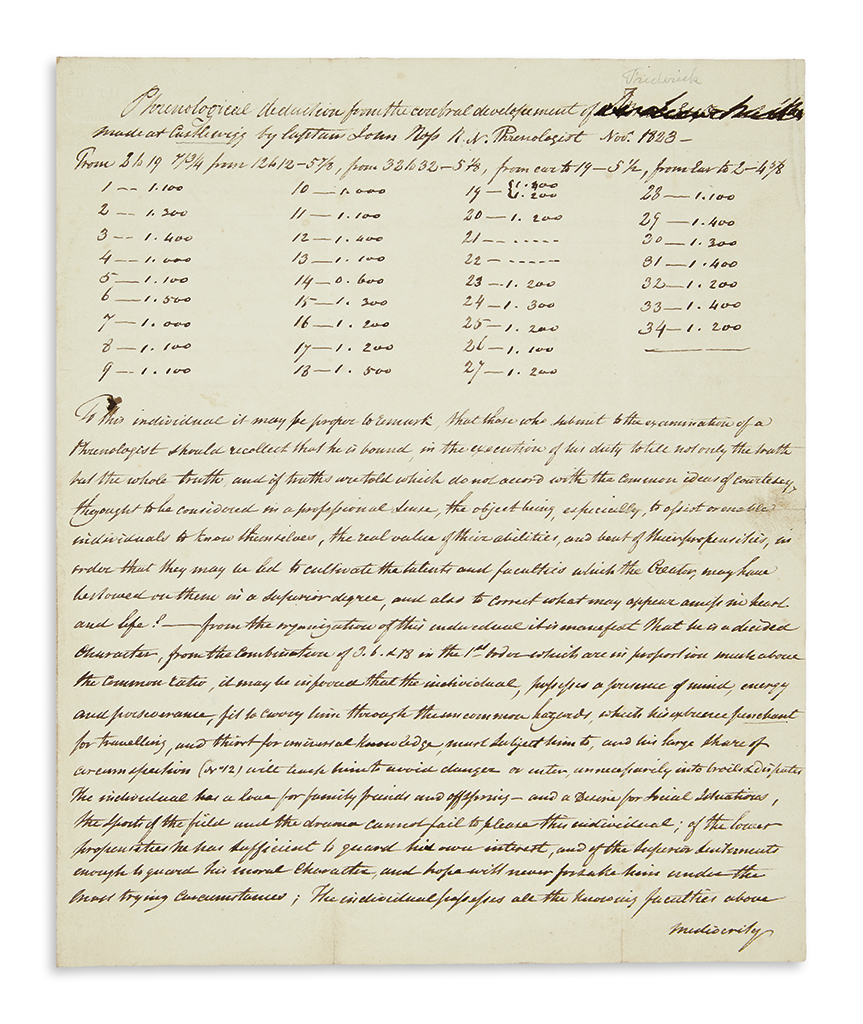 Frederick
Phrenological deduction from the cerebral developement of
made at by Captain John Ross R.N. Phrenologist Nov. 1823 –
From 2 to 19 7¾ from 12 to 12 – 5⅞, from 32 to 32 – 5⅛, from ear to 19 – 5½, from Ear to 2 – 4⅝
1 -- 1.100 10 — 1.000 19 — {1.400 1.200 28 — 1.100
2 -- 1.300 11 — 1.100 20 — 1.200 29 — 1.400
3 -- 1.400 12 — 1.400 21 - - - - - - 30 — 1.300
4 — 1.000 13 — 1.100 22 — - - - - - 31 — 1.400
5 — 1.100 14 — 0.600 23 — 1.200 32 — 1.200
6 — 1.500 15 — 1.300 24 — 1.300 33 — 1.400
7 — 1.000 16 — 1.200 25 — 1.200 34 — 1.200
8 — 1.100 17 — 1.200 26 — 1.100
9 — 1.100 18 — 1.500 27 — 1.200
To this individual it may be proper to remark, that those who submit to the examination of a
Phrenologist should recollect that he is bound, in the execution of his duty to tell not only the truth
but the whole truth, and if truths are told which do not accord with the common ideas of courtesy,
they ought to be considered in a professional sense, the object being, especially, to assist or enable
individuals to know themselves, the real value of their abilities, and bent of their propensities, in
order that they may be led to cultivate the talents and faculties which the Creator, may have
bestowed on them in a superior degree, and also to correct what may appear amiss in heart
and life! — from the organization of this individual it is manifest that he is a decided
Character, from the Combination of 3. 6. & 18 in the 1st order which are in proportion much above
the Common ratio, it may be inferred that the individual, possesses a presence of mind, energy
and perseverance, fit to carry him through the uncommon hazards, which his extreme penchant
for travelling, and thirst for universal knowledge, must subject him to, and his large share of
circumspection (No 12) will teach him to avoid danger or enter, unnecessarily into broils & disputes
The individual has a love for family friends and offspring – and a Desire for Social Situations,
the sports of the field and the drama cannot fail to please this individual; of the lower
propensities he has sufficient to guard his own interest, and of the Superior Sentiments
enough to guard his moral Character, and hope will never forsake him under the
most trying Circumstances; The individual possesses all the knowing faculties above
mediocrity